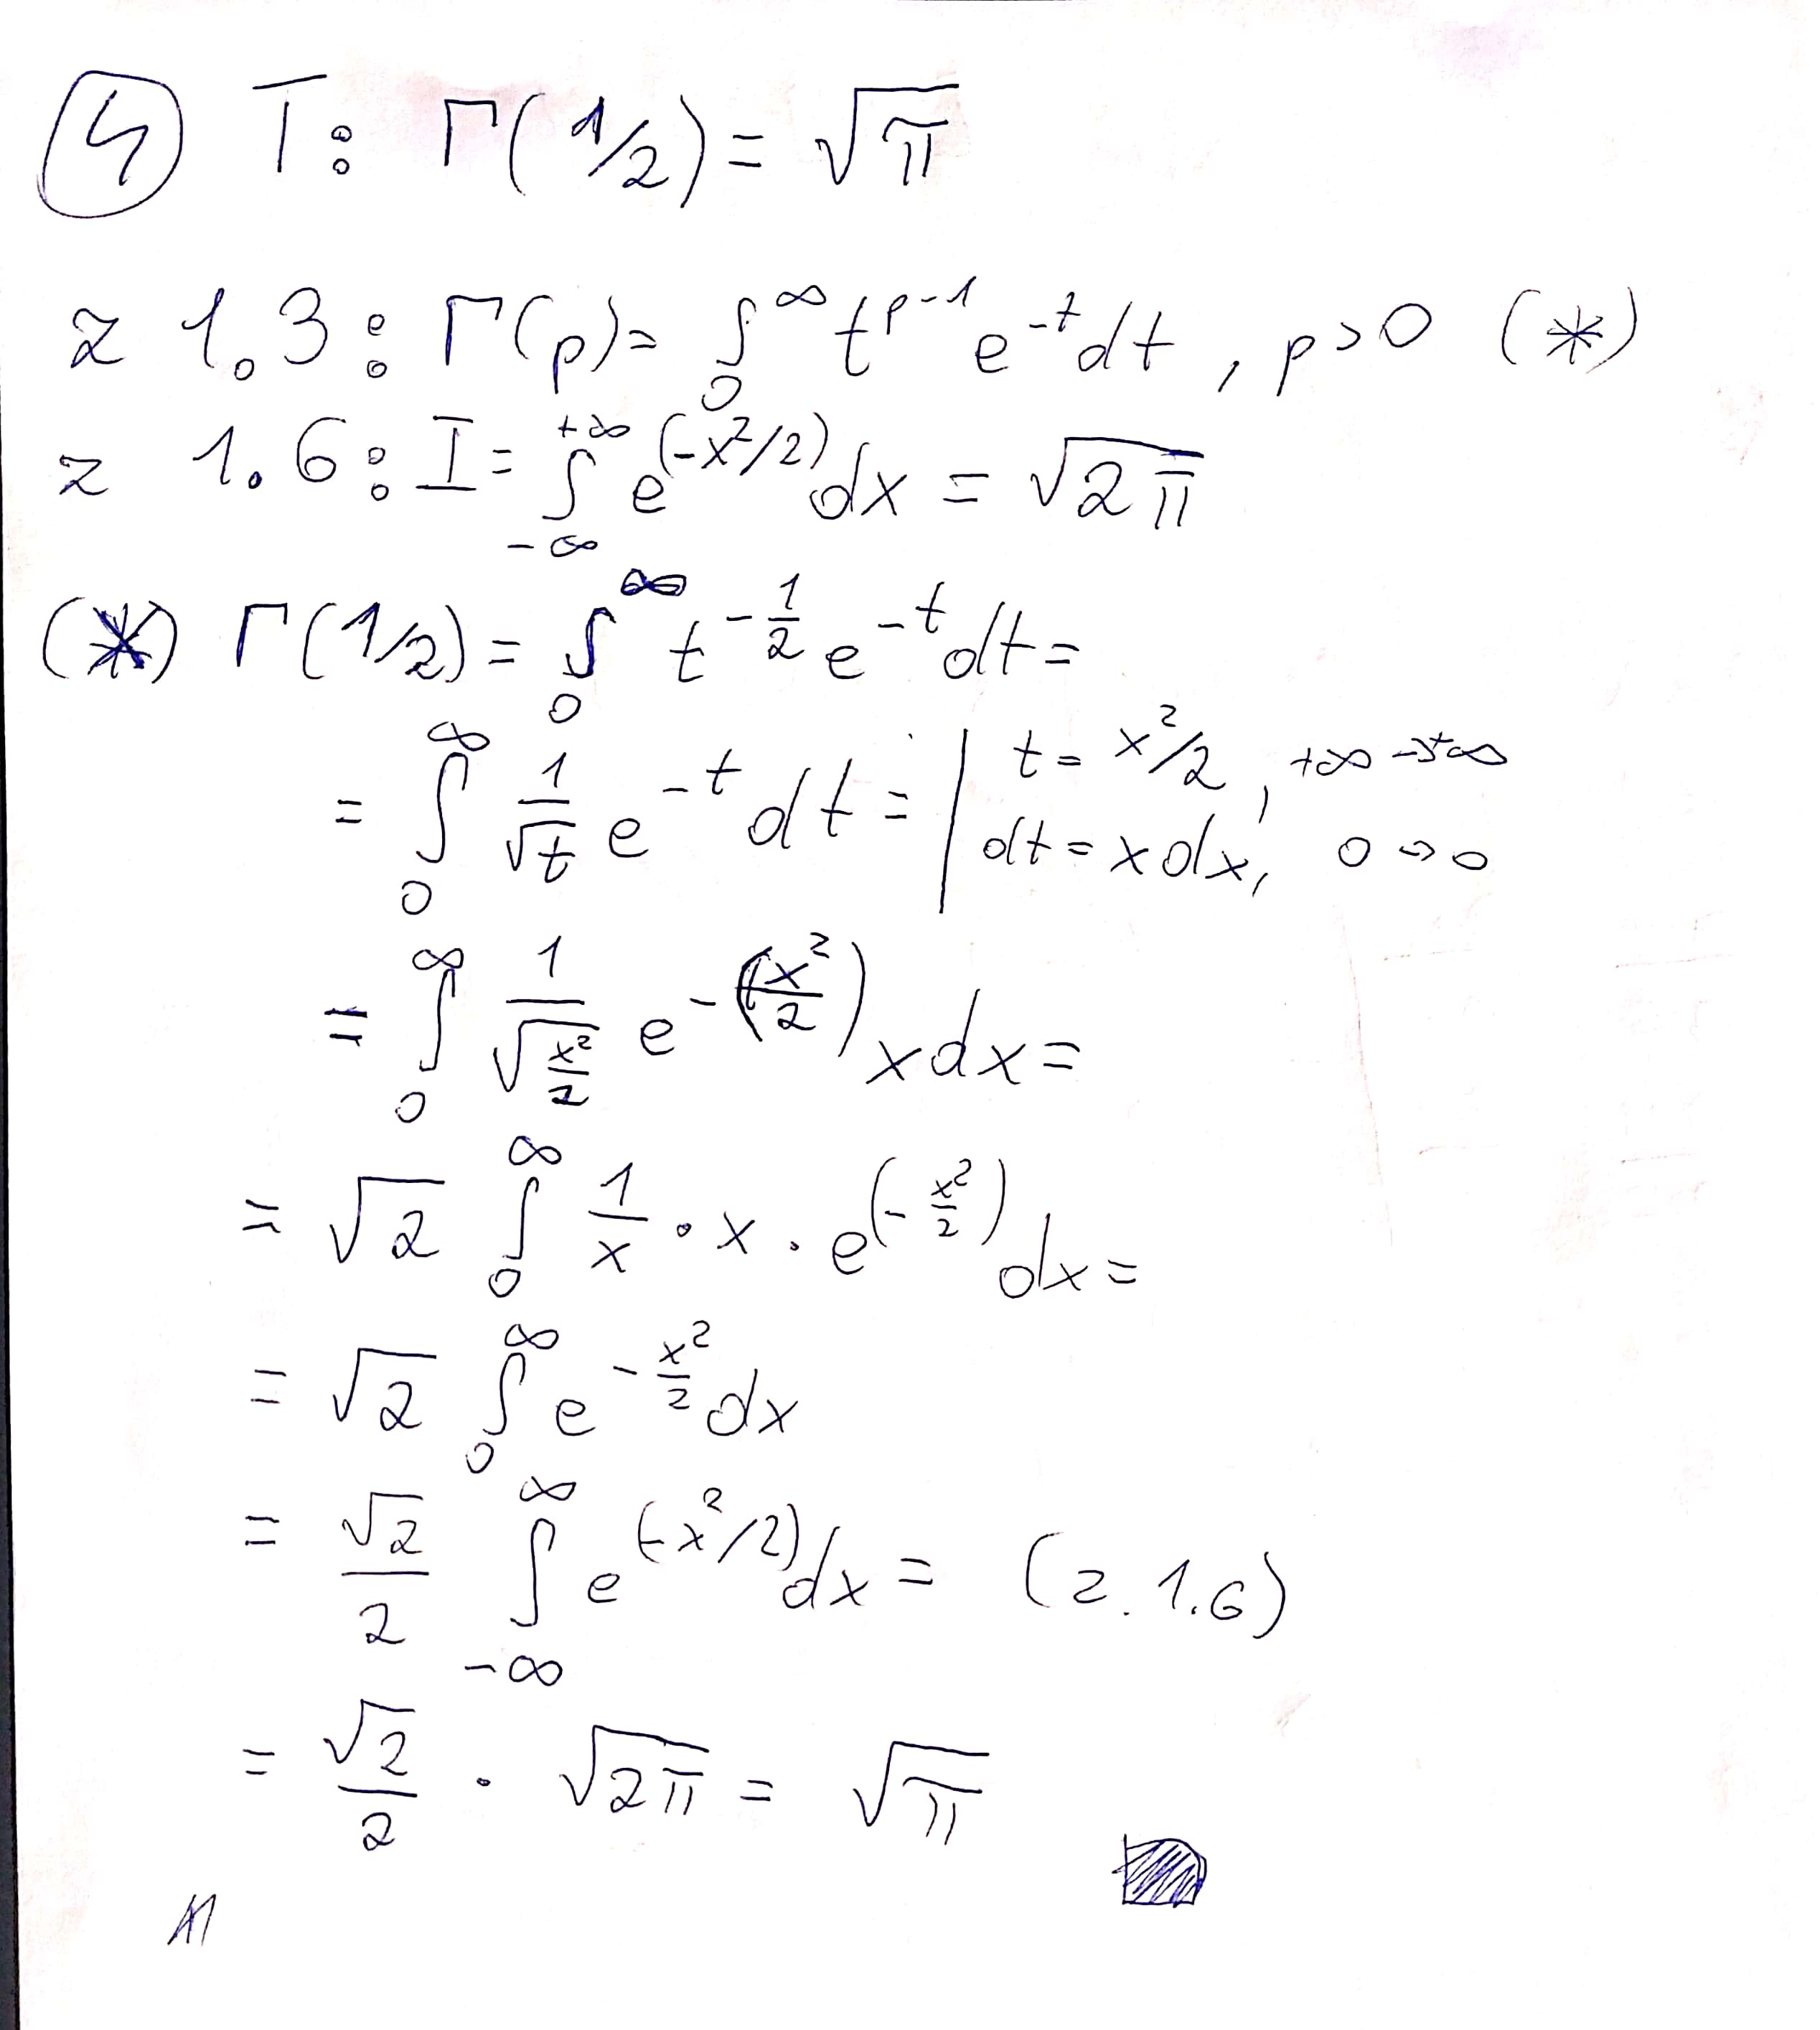 ④ T: Γ(1/2) = √π
z 1.3: Γ(p) = ∫₀^∞ t^(p-1) e^(-t) dt, p>0 (*)
z 1.6: I = ∫_(-∞)^(+∞) e^(-x²/2) dx = √(2π)
(*) Γ(1/2) = ∫₀^∞ t^(-1/2) e^(-t) dt =
= ∫₀^∞ 1/√t e^(-t) dt = | t = x²/2, +∞ → +∞
dt = x dx, 0 → 0
= ∫₀^∞ 1/√(x²/2) e^(-(x²/2)) x dx =
= √2 ∫₀^∞ 1/x · x · e^(-x²/2) dx =
= √2 ∫₀^∞ e^(-x²/2) dx
= √2/2 ∫_(-∞)^∞ e^(-x²/2) dx = (z. 1.6)
= √2/2 · √(2π) = √π